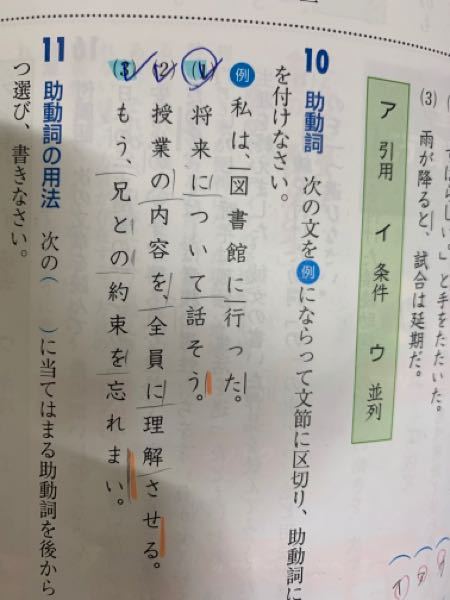 すばらしい。」と手をたたいた。
(3) 雨が降ると、試合は延期だ。
ア 引用 イ 条件 ウ 並列
10 助動詞 次の文を例にならって文節に区切り、助動詞に
を付けなさい。
例 私は、図書館に行った。
(1) 将来について話そう。
(2) 授業の内容を、全員に理解させる。
(3) もう、兄との約束を忘れまい。
11 助動詞の用法 次の( )に当てはまる助動詞を後から
つ選び、書きなさい。